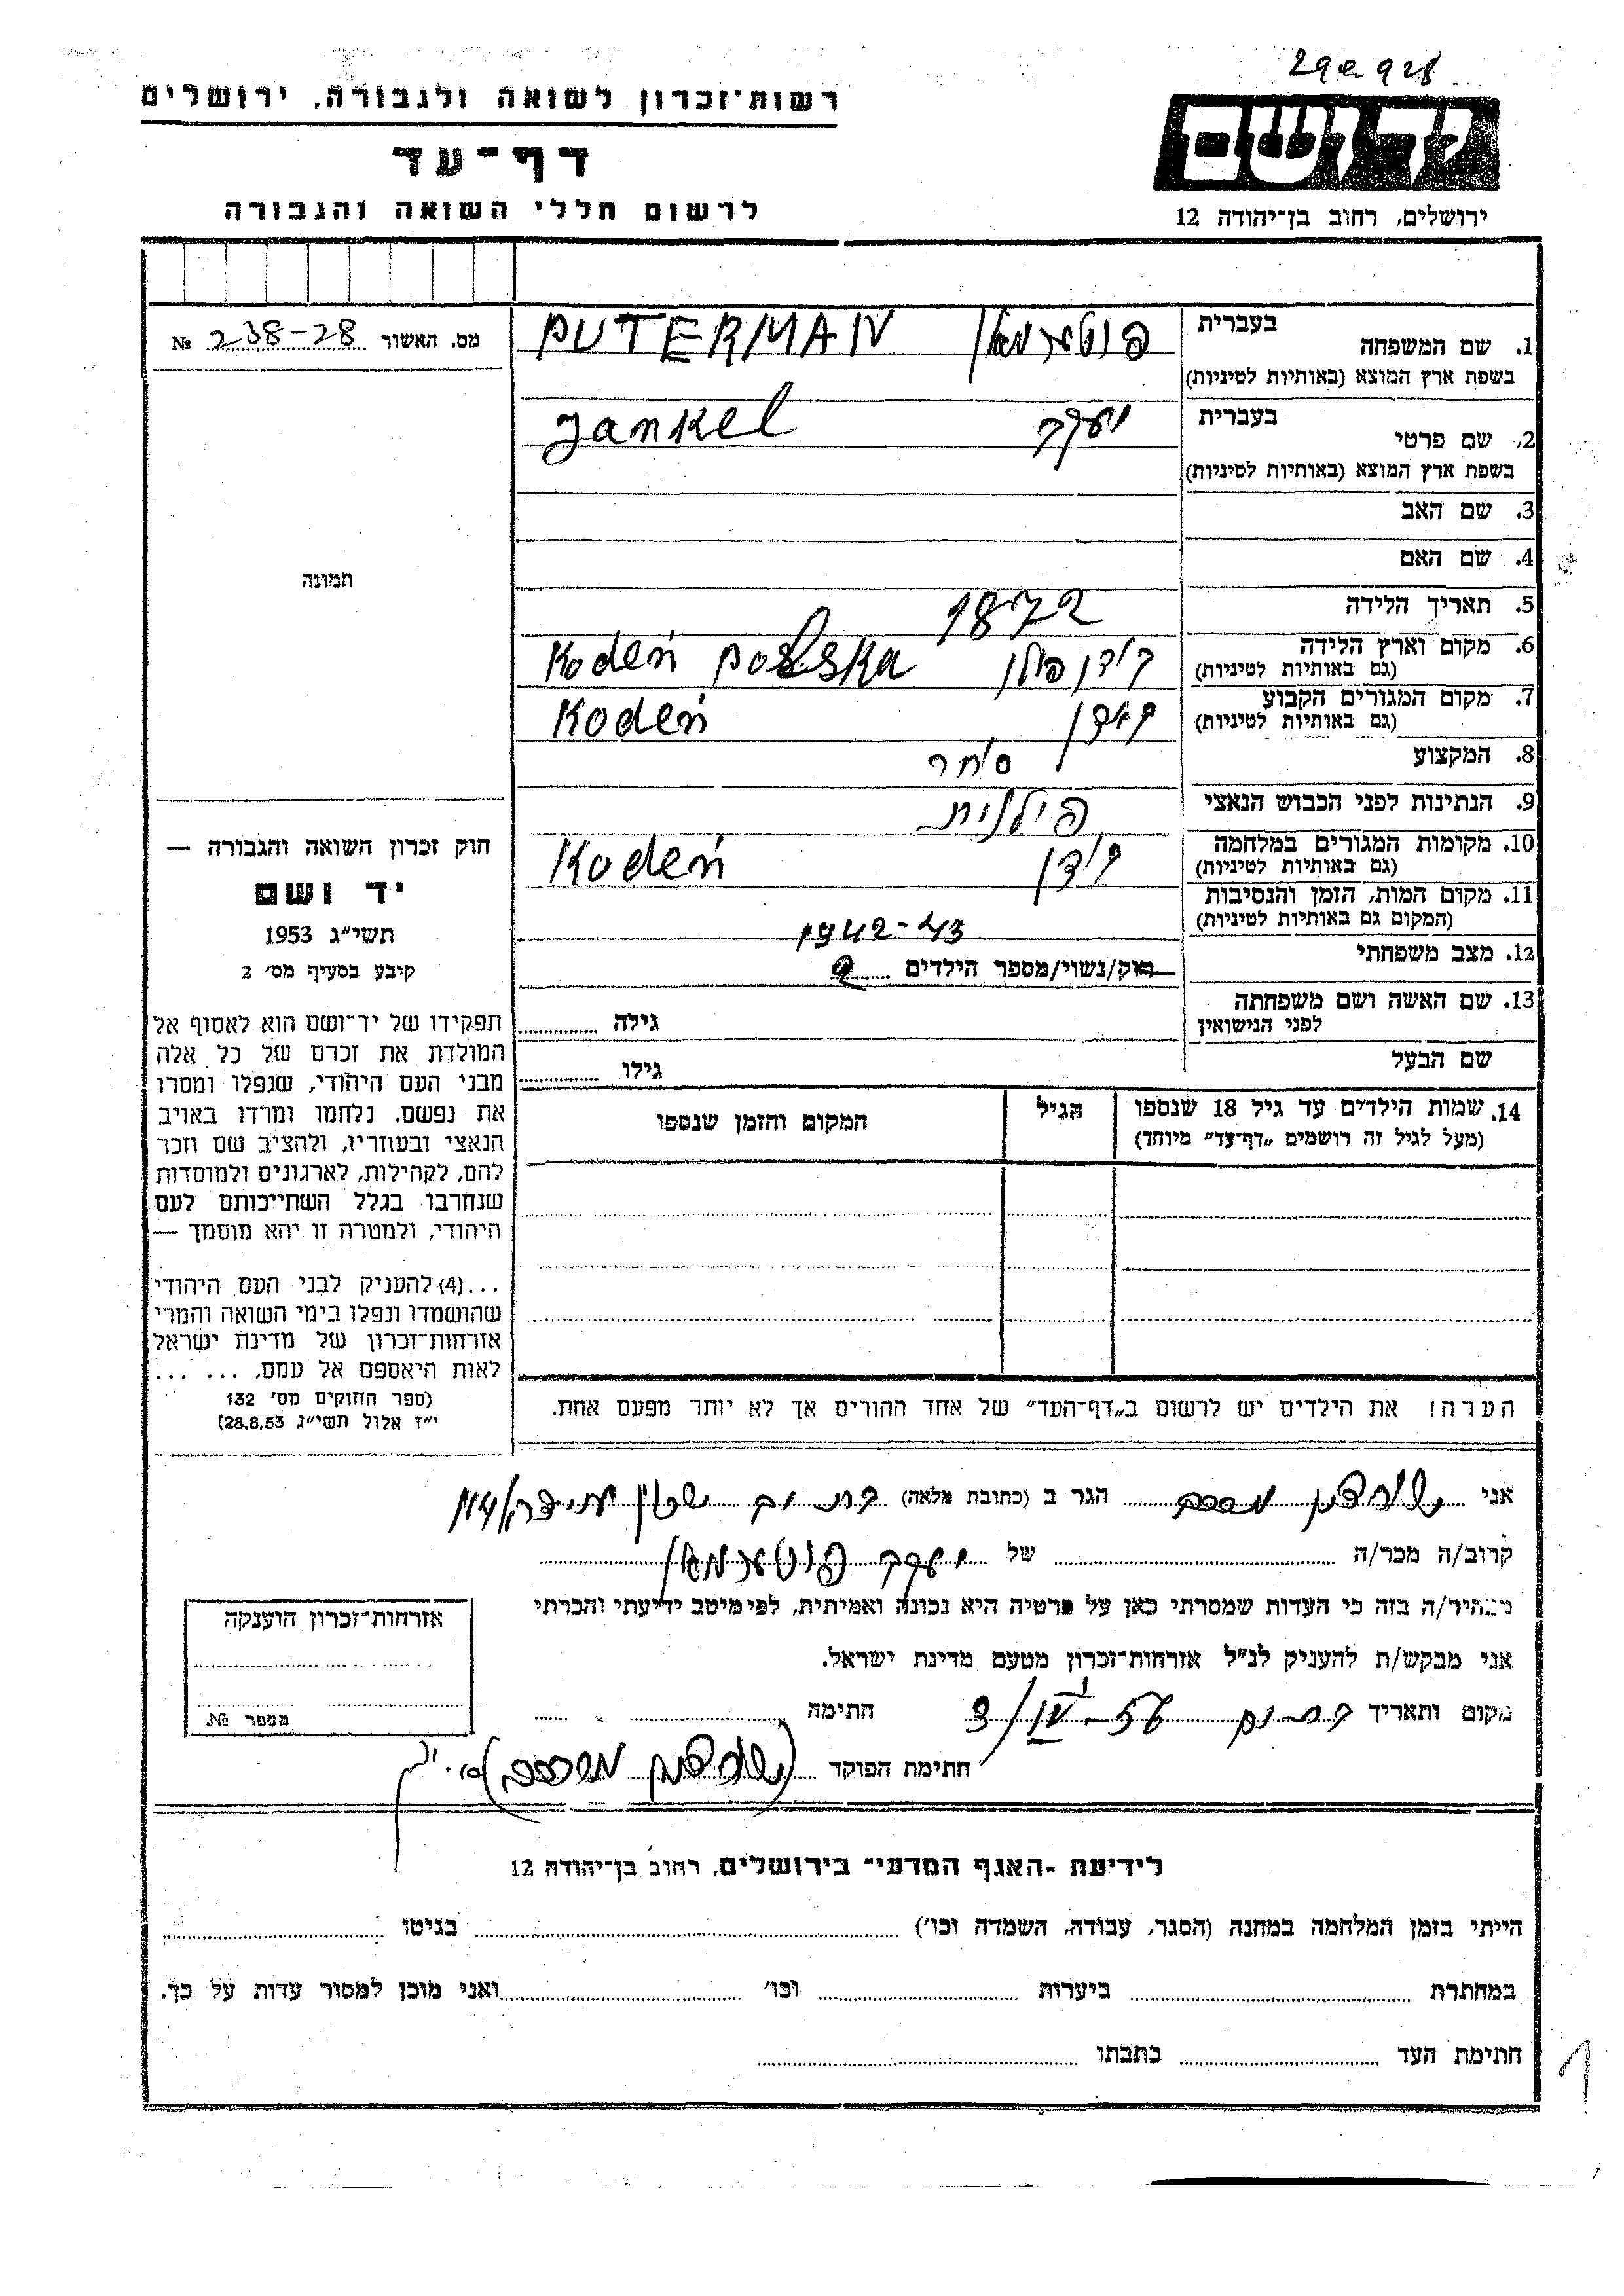 רשות־זכרון לשואה ולגבורה, ירושלים
דף־עד
לרשום חללי השואה והגבורה
יד ושם
ירושלים, רחוב בן־יהודה 12
מס. האשור 238-28 №
תמונה
חוק זכרון השואה והגבורה —
יד ושם
תשי״ג 1953
קיבע בסעיף מס׳ 2
תפקידו של יד־ושם הוא לאסוף אל
המולדת את זכרם של כל אלה
מבני העם היהודי, שנפלו ומסרו
את נפשם. נלחמו ומרדו באויב
הנאצי ובעוזריו, ולהציב שם וזכר
להם, לקהילות, לארגונים ולמוסדות
שנחרבו בגלל השתייכותם לעם
היהודי, ולמטרה זו יהא מוסמך —
...(4) להעניק לבני העם היהודי
שהושמדו ונפלו בימי השואה והמרי
אזרחות־זכרון של מדינת ישראל
לאות היאספם אל עמם, ... ...
(ספר החוקים מס׳ 132
י״ז אלול תשי״ג 28.8.53)
בעברית
1. שם המשפחה פוטערמאן PUTERMAN
בשפת ארץ המוצא (באותיות לטיניות)
בעברית
2. שם פרטי יעקב Jankel
בשפת ארץ המוצא (באותיות לטיניות)
3. שם האב
4. שם האם
5. תאריך הלידה 1872
6. מקום וארץ הלידה קודן פולין Kodeń Polska
(גם באותיות לטיניות)
7. מקום המגורים הקבוע קודן Kodeń
(גם באותיות לטיניות)
8. המקצוע סוחר
9. הנתינות לפני הכבוש הנאצי פולנית
10. מקומות המגורים במלחמה קודן Kodeń
(גם באותיות לטיניות)
11. מקום המות, הזמן והנסיבות
(המקום גם באותיות לטיניות) 1942-43
12. מצב משפחתי רוק/נשוי/מספר הילדים
13. שם האשה ושם משפחתה
לפני הנישואין גילה
שם הבעל גילו
14. שמות הילדים עד גיל 18 שנספו הגיל המקום והזמן שנספו
(מעל לגיל זה רושמים „דף־עד״ מיוחד)
הערה! את הילדים יש לרשום ב„דף־העד״ של אחד ההורים אך לא יותר מפעם אחת.
אני הגר ב (כתובת מלאה) בת ים
קרוב/ה מכר/ה של יעקב פוטערמאן
מצהיר/ה בזה כי העדות שמסרתי כאן על פרטיה היא נכונה ואמיתית, לפי מיטב ידיעתי והכרתי
אני מבקש/ת להעניק לנ״ל אזרחות־זכרון מטעם מדינת ישראל.
מקום ותאריך בת ים 3/IV-57 חתימה
חתימת הפוקד
אזרחות־זכרון הוענקה
מספר №
לידיעת ־האגף המדעי־ בירושלים, רחוב בן־יהודה 12
הייתי בזמן המלחמה במחנה (הסגר, עבודה, השמדה וכו׳) בגיטו
במחתרת ביערות וכו׳ ואני מוכן למסור עדות על כך.
חתימת העד כתבתו
1